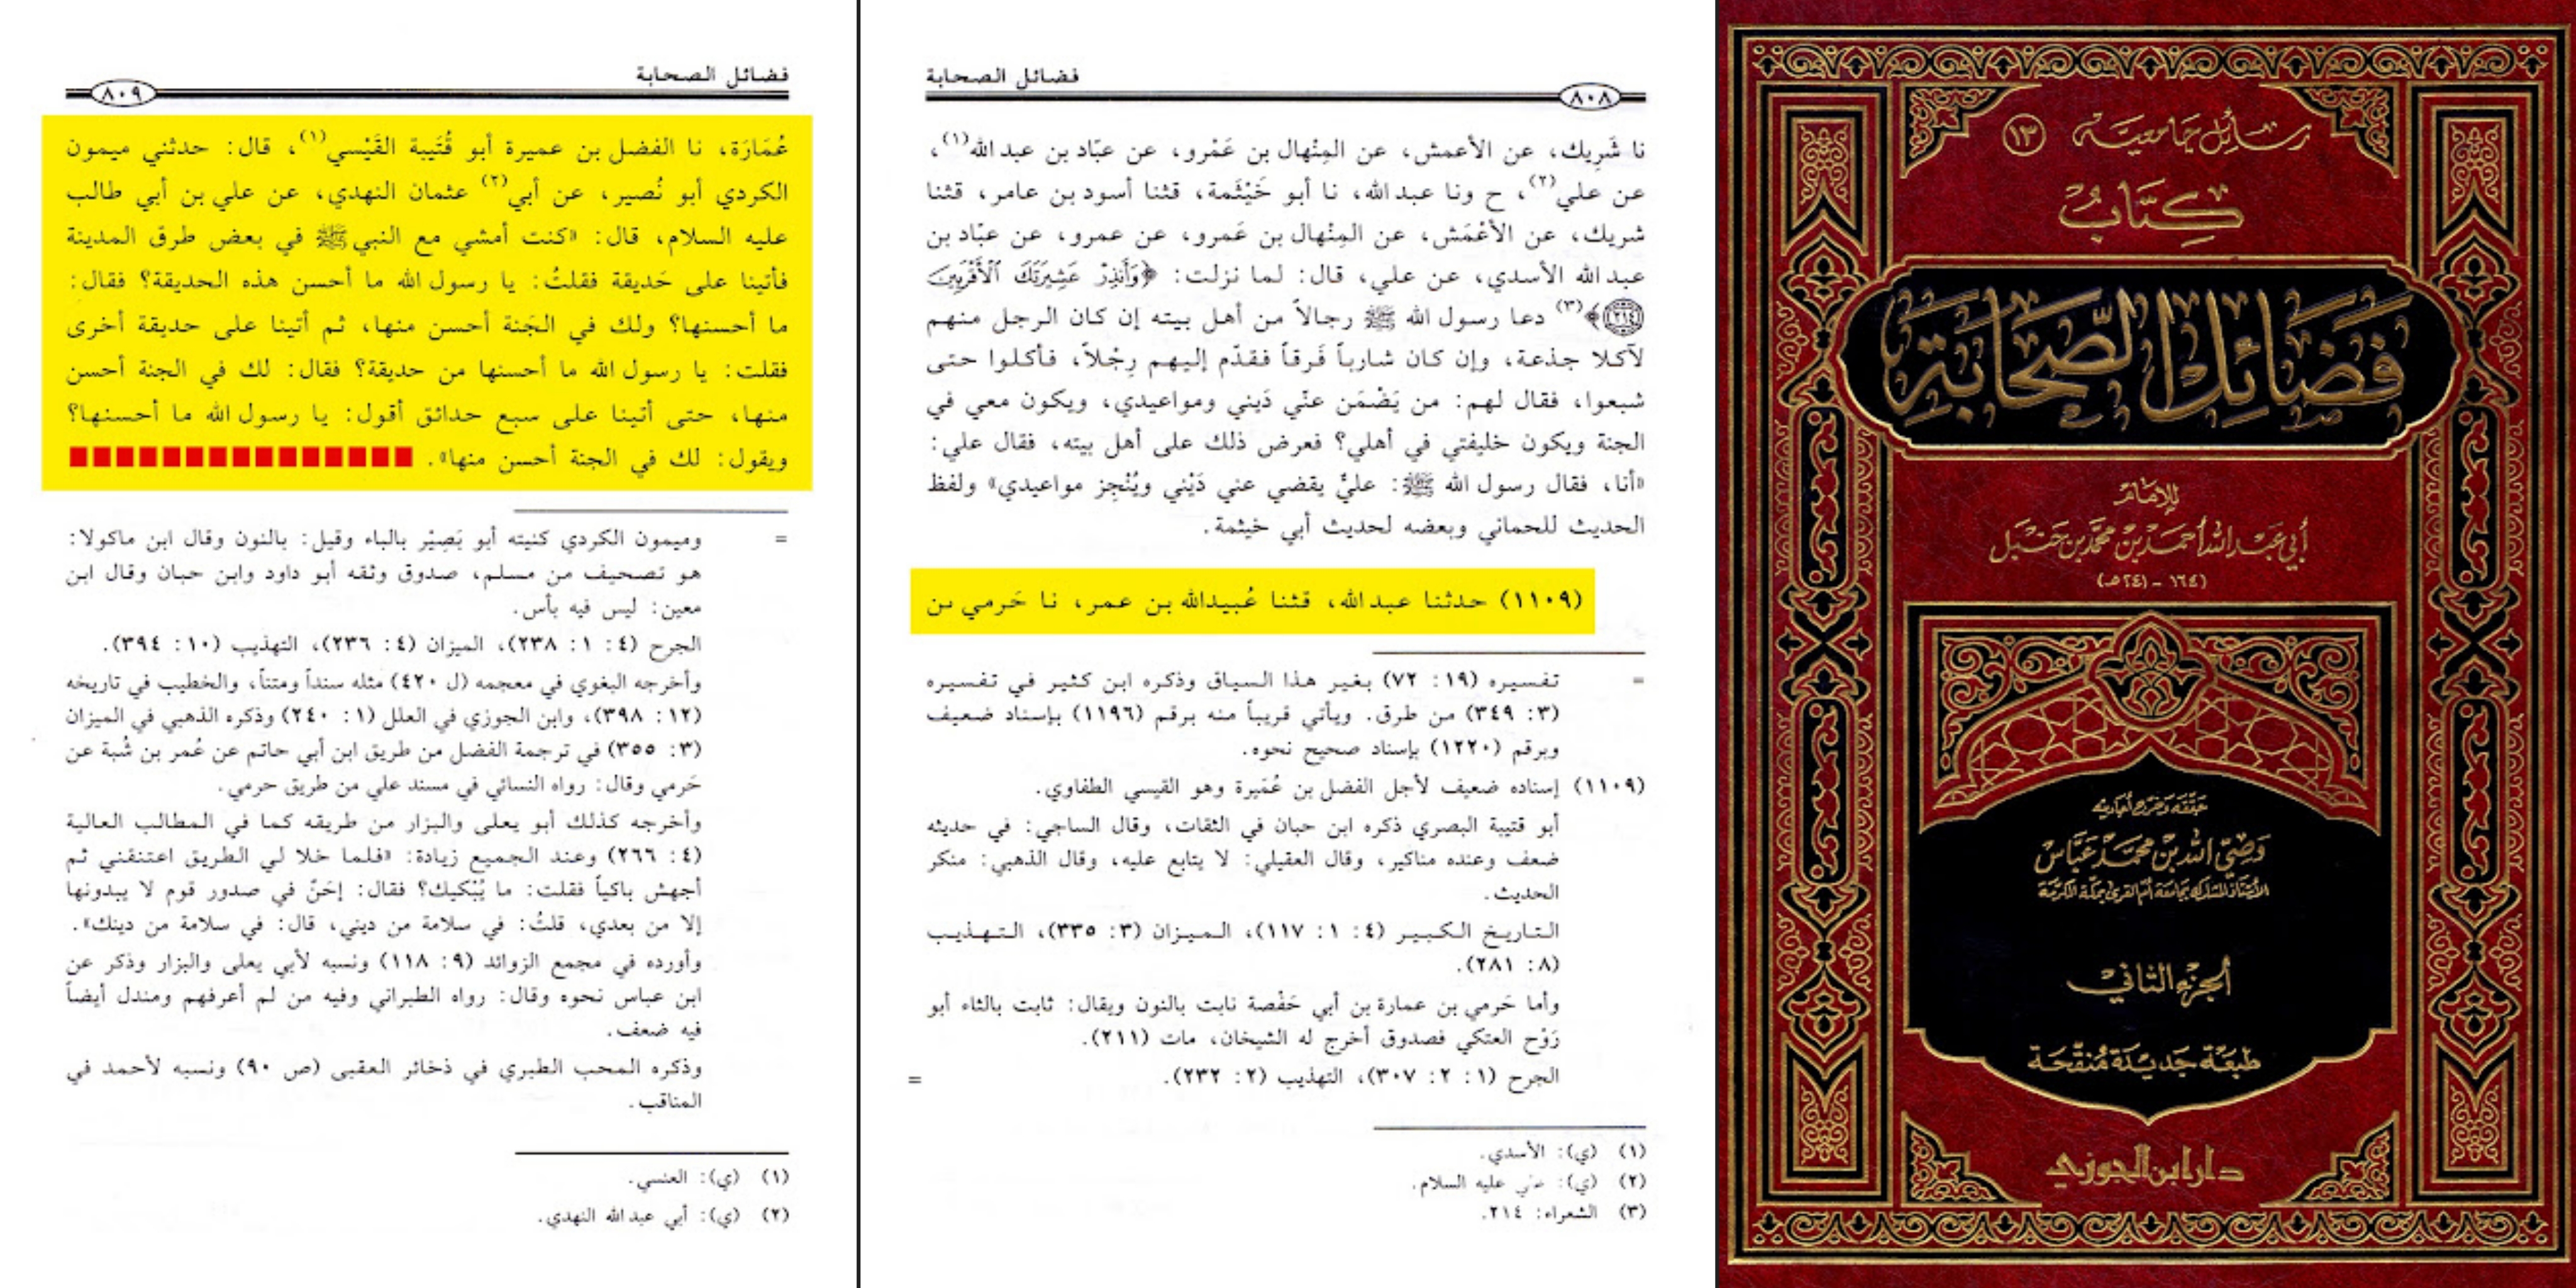 رسائل جامعية ١٣
كتاب
فضائل الصحابة
للإمام
أبي عبد الله أحمد بن محمد بن حنبل
(١٦٤ - ٢٤١هـ)
حققه وخرج أحاديثه
وصي الله بن محمد عباس
الأستاذ المشارك بجامعة أم القرى بمكة المكرمة
الجزء الثاني
طبعة جديدة منقحة
دار ابن الجوزي
٨٠٨
فضائل الصحابة
نا شَرِيك، عن الأعمش، عن المِنْهال بن عَمْرو، عن عبّاد بن عبدالله(١)،
عن علي(٢)، ح ونا عبدالله، نا أبو خَيْثَمة، قثنا أسود بن عامر، قثنا
شريك، عن الأعْمَش، عن المِنْهال بن عَمرو، عن عمرو، عن عبّاد بن
عبدالله الأسدي، عن علي، قال: لما نزلت: ﴿وَأَنذِرْ عَشِيرَتَكَ ٱلْأَقْرَبِينَ
﴿٢١٤﴾﴾(٣) دعا رسول الله ﷺ رجالاً من أهل بيته إن كان الرجل منهم
لآكلا جذعة، وإن كان شارباً فَرقاً فقدّم إليهم رِجْلاً، فأكلوا حتى
شبعوا، فقال لهم: من يَضْمَن عنّي دَيني ومواعيدي، ويكون معي في
الجنة ويكون خليفتي في أهلي؟ فعرض ذلك على أهل بيته، فقال علي:
«أنا، فقال رسول الله ﷺ: عليٌّ يقضي عني دَيْني ويُنْجِز مواعيدي» ولفظ
الحديث للحماني وبعضه لحديث أبي خيثمة.
(١١٠٩) حدثنا عبدالله، قثنا عُبيدالله بن عمر، نا حَرمي بن
= تفسيره (١٩: ٧٢) بغير هذا السياق وذكره ابن كثير في تفسيره
(٣: ٣٤٩) من طرق. ويأتي قريباً منه برقم (١١٩٦) بإسناد ضعيف
وبرقم (١٢٢٠) بإسناد صحيح نحوه.
(١١٠٩) إسناده ضعيف لأجل الفضل بن عُمَيرة وهو القيسي الطفاوي.
أبو قتيبة البصري ذكره ابن حبان في الثقات، وقال الساجي: في حديثه
ضعف وعنده مناكير، وقال العقيلي: لا يتابع عليه، وقال الذهبي: منكر
الحديث.
التاريخ الكبير (٤: ١: ١١٧)، الميزان (٣: ٣٣٥)، التهذيب
(٨: ٢٨١).
وأما حَرمي بن عمارة بن أبي حَفْصة نابت بالنون ويقال: ثابت بالثاء أبو
رَوْح العتكي فصدوق أخرج له الشيخان، مات (٢١١).
الجرح (١: ٢: ٣٠٧)، التهذيب (٢: ٢٣٢). =
(١) (ي): الأسدي.
(٢) (ي): علي عليه السلام.
(٣) الشعراء: ٢١٤.
فضائل الصحابة
٨٠٩
عُمَارَة، نا الفضل بن عميرة أبو قُتَيبة القَيْسي(١)، قال: حدثني ميمون
الكردي أبو نُصير، عن أبي(٢) عثمان النهدي، عن علي بن أبي طالب
عليه السلام، قال: «كنت أمشي مع النبي ﷺ في بعض طرق المدينة
فأتينا على حَديقة فقلتُ: يا رسول الله ما أحسن هذه الحديقة؟ فقال:
ما أحسنها؟ ولك في الجَنة أحسن منها، ثم أتينا على حديقة أخرى
فقلت: يا رسول الله ما أحسنها من حديقة؟ فقال: لك في الجنة أحسن
منها، حتى أتينا على سبع حدائق أقول: يا رسول الله ما أحسنها؟
ويقول: لك في الجنة أحسن منها».
= وميمون الكردي كنيته أبو بَصِيْر بالباء وقيل: بالنون وقال ابن ماكولا:
هو تصحيف من مسلم، صدوق وثقه أبو داود وابن حبان وقال ابن
معين: ليس فيه بأس.
الجرح (٤: ١: ٢٣٨)، الميزان (٤: ٢٣٦)، التهذيب (١٠: ٣٩٤).
وأخرجه البغوي في معجمه (ل ٤٢٠) مثله سنداً ومتناً، والخطيب في تاريخه
(١٢: ٣٩٨)، وابن الجوزي في العلل (١: ٢٤٠) وذكره الذهبي في الميزان
(٣: ٣٥٥) في ترجمة الفضل من طريق ابن أبي حاتم عن عُمر بن شُبة عن
حَرمي وقال: رواه النسائي في مسند علي من طريق حرمي.
وأخرجه كذلك أبو يعلى والبزار من طريقه كما في المطالب العالية
(٤: ٢٦٦) وعند الجميع زيادة: «فلما خلا لي الطريق اعتنقني ثم
أجهش باكياً فقلت: ما يُبْكيك؟ فقال: إحَنٌ في صدور قوم لا يبدونها
إلا من بعدي، قلتُ: في سلامة من ديني، قال: في سلامة من دينك».
وأورده في مجمع الزوائد (٩: ١١٨) ونسبه لأبي يعلى والبزار وذكر عن
ابن عباس نحوه وقال: رواه الطبراني وفيه من لم أعرفهم ومندل أيضاً
فيه ضعف.
وذكره المحب الطبري في ذخائر العقبى (ص ٩٠) ونسبه لأحمد في
المناقب.
(١) (ي): العنسي.
(٢) (ي): أبي عبدالله النهدي.